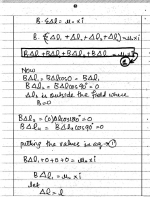 B·ΣΔl = μ₀ × i
B·{ΣΔl₁ + Δl₂ + Δl₃ + Δl₄} = μ₀ × i
BΔl₁ + BΔl₂ + BΔl₃ + BΔl₄ = μ₀ × i
Now
BΔl₁ = BΔl cos0 = BΔl₁
BΔl₂ = BΔl cos90° = 0
Δl₃ is outside the field where
B = 0
BΔl₃ = (0)Δl cos180° = 0
BΔl₄ = BΔl cos90° = 0
putting the values in eq → ①
BΔl₁ + 0 + 0 + 0 = μ₀ × i
BΔl₁ = μ₀ × i
let
Δl = l